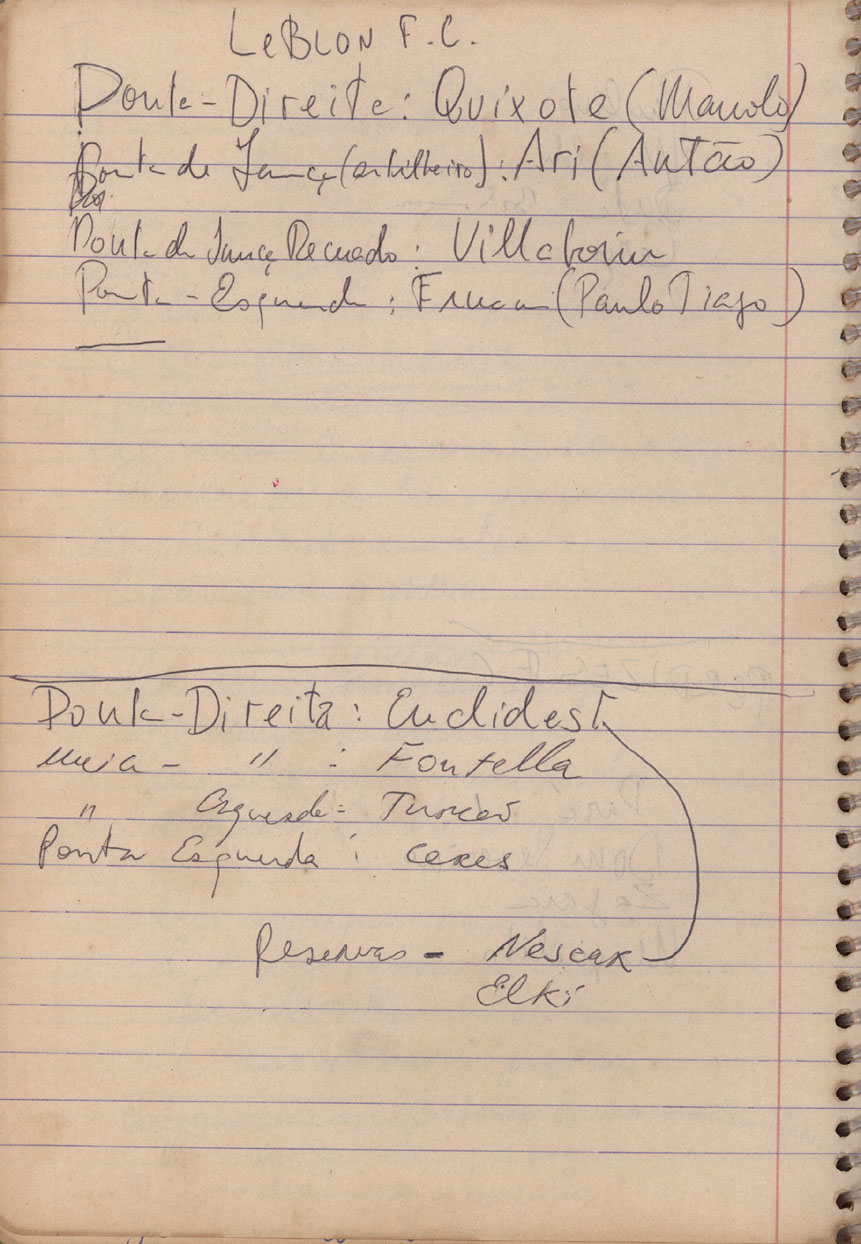 LEBLON F.C.
Ponta-Direita: Quixote (Manolo)
Ponta de Lança (artilheiro): Ari (Antão)
Ponta de Lança Recuado: Villaboim
Ponta-Esquerda: (Paulo Tiago)
Ponta-Direita: Euclides
Meia - " : Fontella
" Esquerda =
Ponta Esquerda: Ceres
Reservas - Nescar
Elki